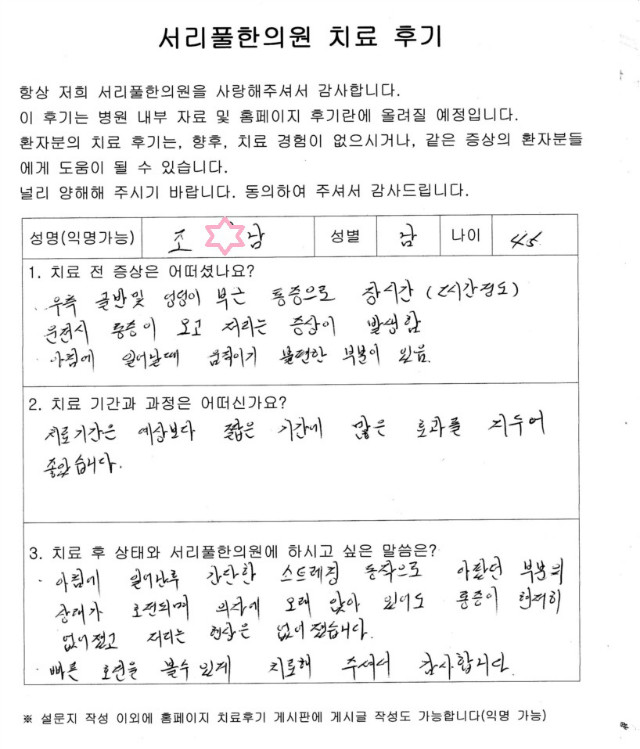 서리풀한의원 치료 후기
항상 저희 서리풀한의원을 사랑해주셔서 감사합니다.
이 후기는 병원 내부 자료 및 홈페이지 후기란에 올려질 예정입니다.
환자분의 치료 후기는, 향후, 치료 경험이 없으시거나, 같은 증상의 환자분들
에게 도움이 될 수 있습니다.
널리 양해해 주시기 바랍니다. 동의하여 주셔서 감사드립니다.
성명(익명가능) 조 남 성별 남 나이 45
1. 치료 전 증상은 어떠셨나요?
· 우측 골반및 엉덩이 부근 통증으로 장시간 (2시간정도)
운전시 통증이 오고 저리는 증상이 발생함
· 아침에 일어날때 움직이기 불편한 부분이 있음.
2. 치료 기간과 과정은 어떠신가요?
치료기간은 예상보다 짧은 기간에 많은 효과를 거두어
좋았습니다.
3. 치료 후 상태와 서리풀한의원에 하시고 싶은 말씀은?
· 아침에 일어난후 간단한 스트레칭 동작으로 아팠던 부분의
상태가 호전되며 의자에 오래 앉아 있어도 통증이 현저히
없어졌고 저리는 현상은 없어졌습니다.
· 빠른 호전을 볼수 있게 치료해 주셔서 감사합니다.
※ 설문지 작성 이외에 홈페이지 치료후기 게시판에 게시글 작성도 가능합니다(익명 가능)